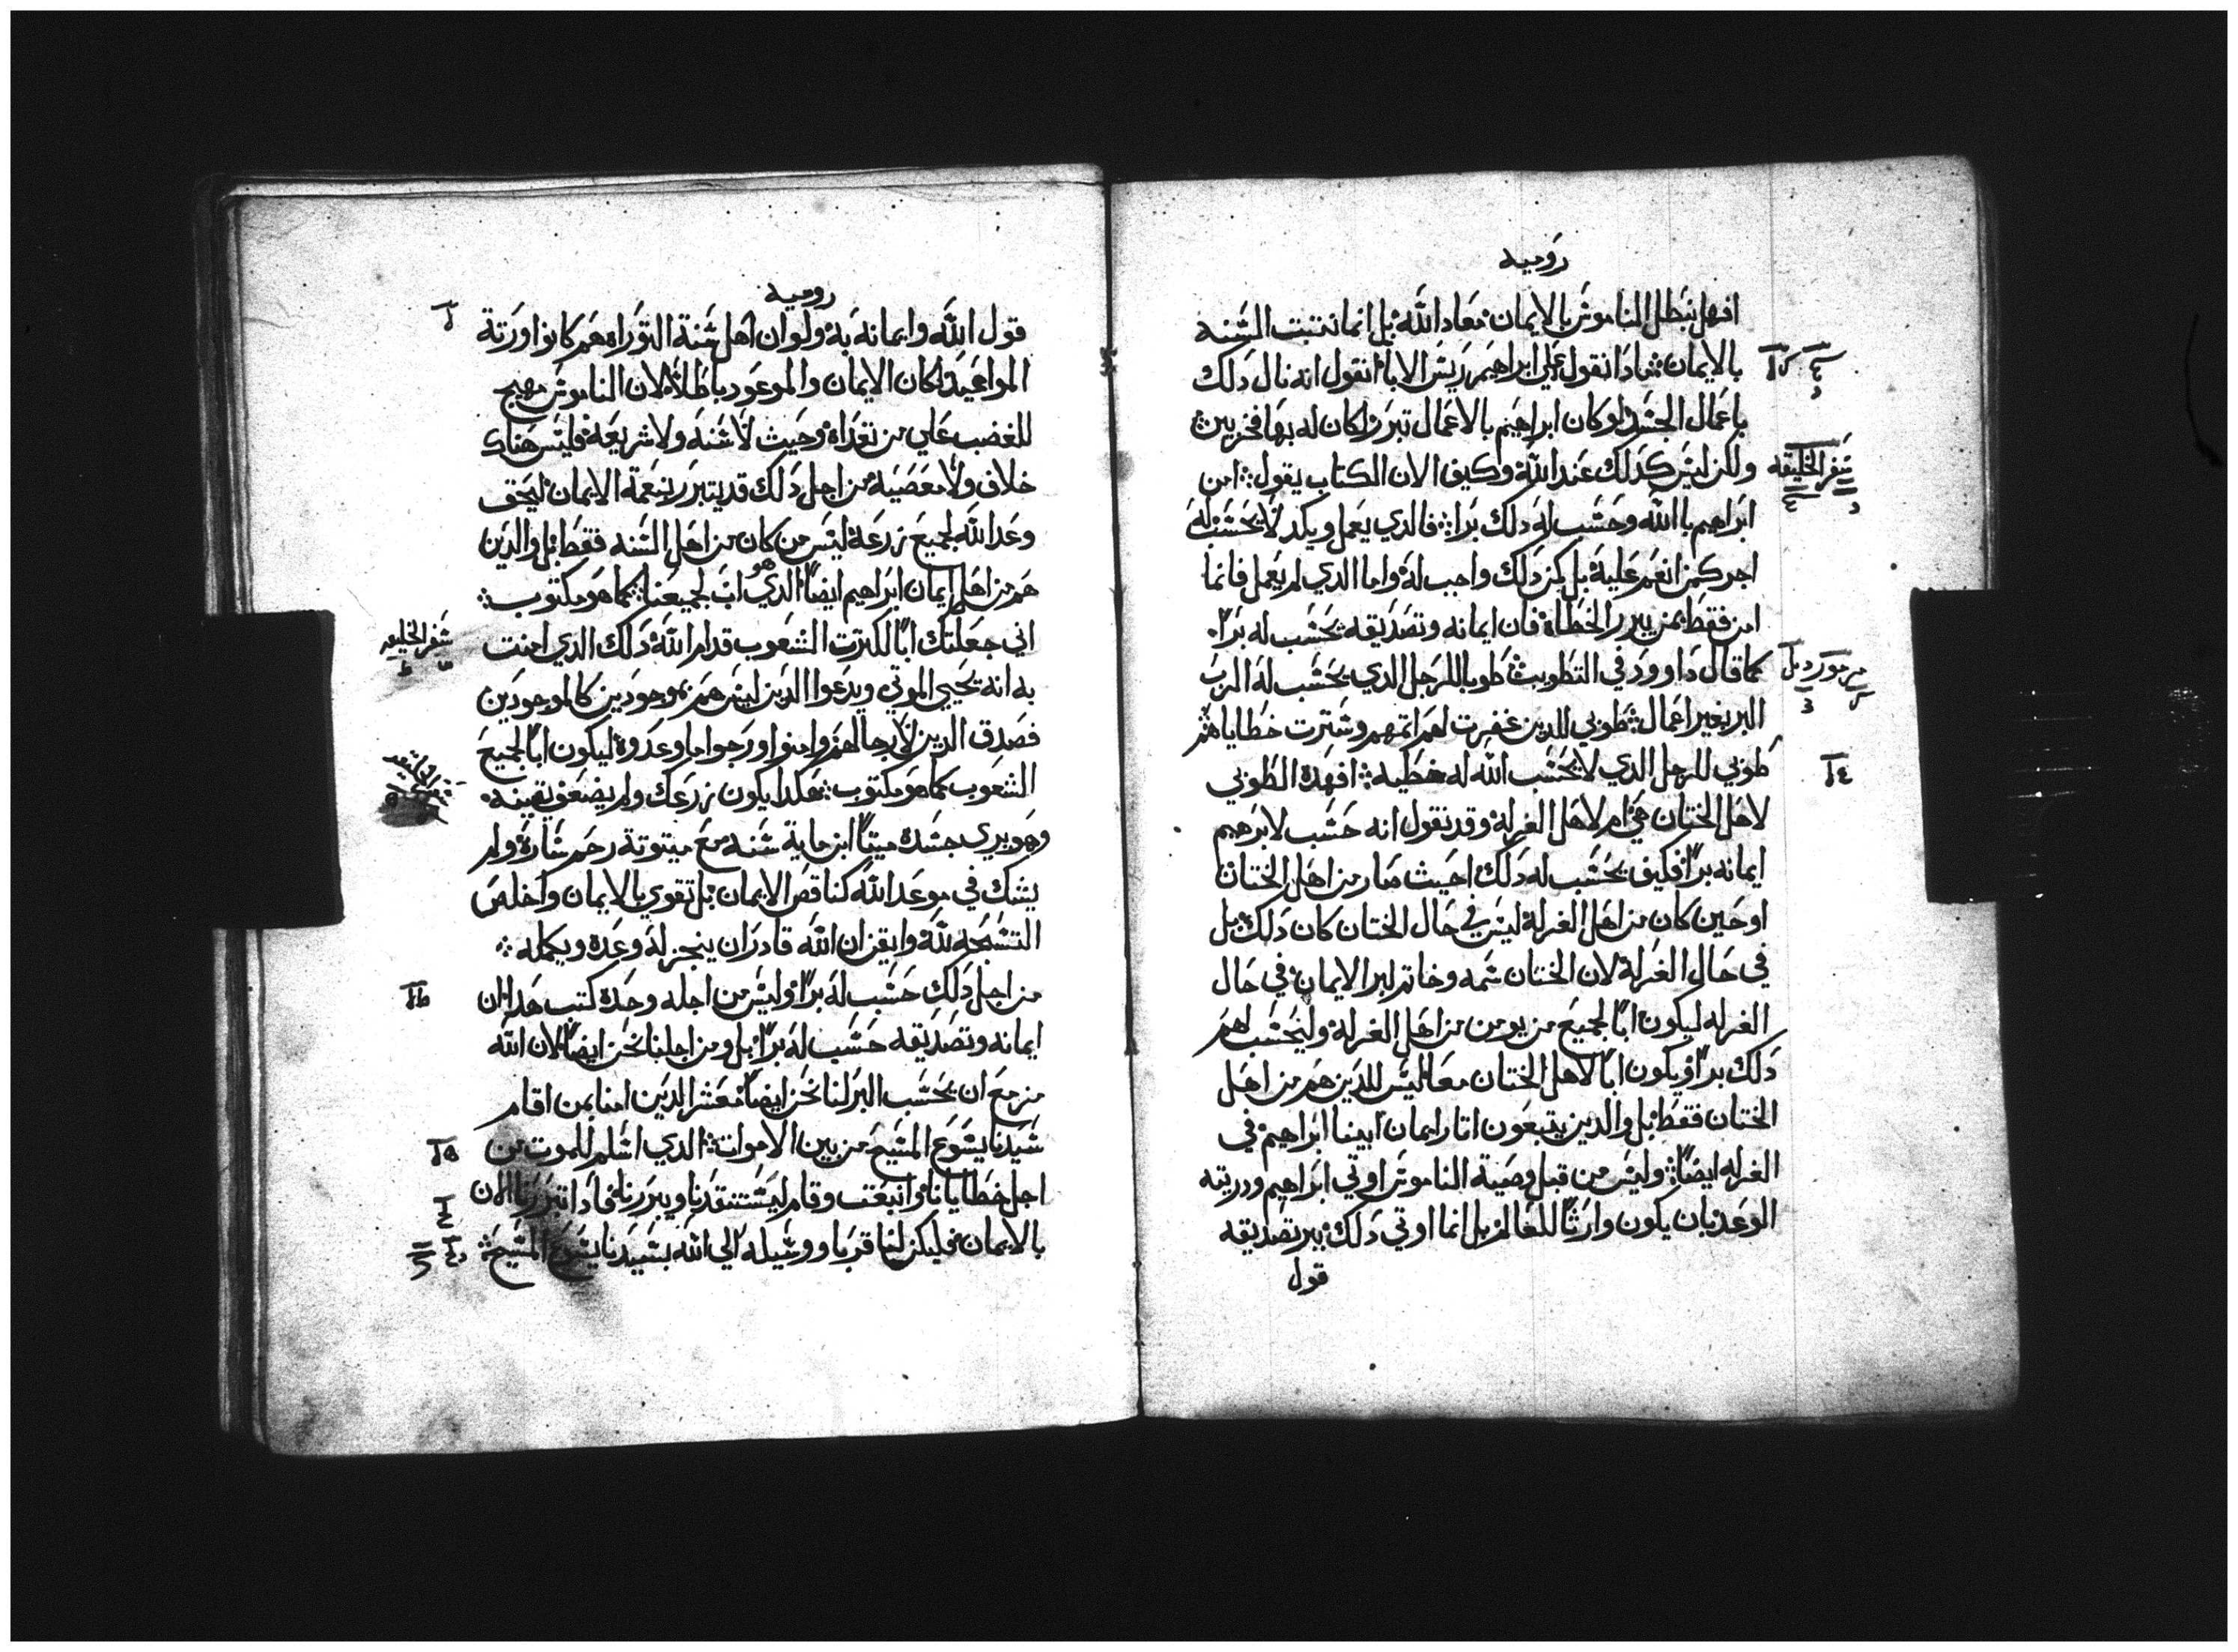 روميه
افهل نبطل الناموس بالايمان معاد الله بل انما نتبت السنه
بالايمان فمادا نقول علي ابراهيم ريس الابا انقول انه نال دلك
باعمال الجسد لو كان ابراهيم بالاعمال تبرر لكان له بها فخر
ولكن ليس كدلك عند الله وكيف الان الكتاب يقول امن
سفر الخليقه
ابراهيم بالله وحسب له دلك برا فالدي يعمل ويكد لا يحسب له
اجر كمن انعم عليه بل كمن دلك واجب له واما الدي لم يعمل فانما
امن فقط بمن يبرر الخطاه فان ايمانه وتصديقه يحسب له برا
كما قال داوود في التطويب طوبا للرجل الدي يحسب له الرب
مزمور
البر بغير اعمال طوبي للدين غفرت لهم اتمهم وسترت خطاياهم
طوبي للرجل الدي لا يحسب الله له خطيه افهده الطوبي
لاهل الختان هي ام لاهل الغرله وقد نقول انه حسب لابرهيم
ايمانه برا فكيف يحسب له دلك احيث صار من اهل الختان
او حين كان من اهل الغرله ليس في حال الختان كان دلك بل
في حال الغرلة لان الختان سمه وخاتم لبر الايمان في حال
الغرله ليكون ابا لجميع من يومن من اهل الغرلة وليحسب لهم
دلك برا ويكون ابا لاهل الختان معا ليس للدين هم من اهل
الختان فقط بل والدين يتبعون اتار ايمان ابينا ابراهيم في
الغرله ايضا وليس من قبل وصية الناموس اوتي ابراهيم ودريته
الوعد بان يكون وارثا للعالم بل انما اوتي دلك ببر تصديقه
قول
روميه
قول الله وايمانه به ولو ان اهل سنة التوراه هم كانوا ورتة
المواعيد لكان الايمان والموعود باطلا لان الناموس مهيج
للغضب علي من تعداه وحيث لا سنه ولا شريعة فليس هناك
خلاف ولا معصية من اجل دلك قد يتبرر بنعمة الايمان ليحق
وعد الله لجميع زرعه ليس من كان من اهل السنه فقط بل والدين
هم من اهل ايمان ابراهيم ايضا الدي هو اب لجميعنا كما هو مكتوب
اني جعلتك ابا لكترت الشعوب قدام الله دلك الدي امنت
سفر الخليقه
به انه يحيي الموتي ويدعوا الدين ليس هم بموجودين كالموجودين
فصدق الدين لا رجا لهم وامنوا ورجوا ما وعدوه ليكون ابا لجميع
الشعوب كما هو مكتوب هكدا يكون زرعك ولم يضعف يقينه
وهو يري جسده ميتا ابن ماية سنه مع ميتوتة رحم ساره ولم
يشك في موعد الله كناقص الايمان بل تقوي بالايمان واخلص
التسبحه لله وايقن ان الله قادر ان ينجز له وعده ويكمله
من اجل دلك حسب له برا وليس من اجله وحده كتب هدا ان
ايمانه وتصديقه حسب له برا بل ومن اجلنا نحن ايضا لان الله
مزمع ان يحسب البر لنا نحن ايضا معشر الدين امنا بمن اقام
سيدنا يسوع المسيح من بين الاموات الدي اسلم للموت من
اجل خطايانا وانبعت وقام ليستنقدنا ويبررنا فاد اتبررنا الان
بالايمان فليكن لنا قربا ووسيله الي الله بسيدنا يسوع المسيح